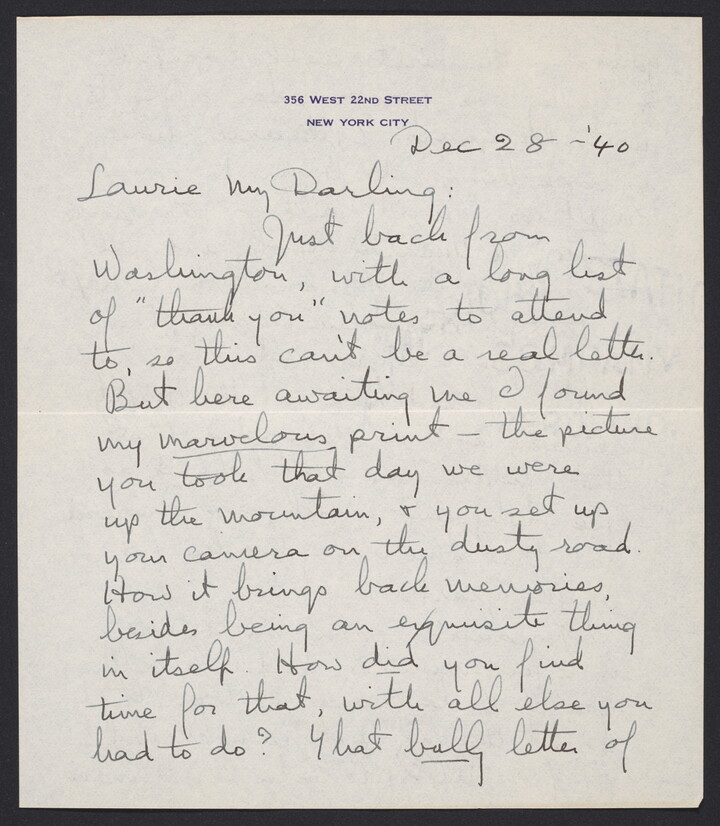 356 WEST 22ND STREET
NEW YORK CITY
Dec 28 - '40
Laurie My Darling:
Just back from
Washington, with a long list
of "thank you" notes to attend
to, so this can't be a real letter.
But here awaiting me I found
my marvelous print – the picture
you took that day we were
up the mountain, & you set up
your camera on the dusty road.
How it brings back memories,
besides being an exquisite thing
in itself. How did you find
time for that, with all else you
had to do? That bully letter of